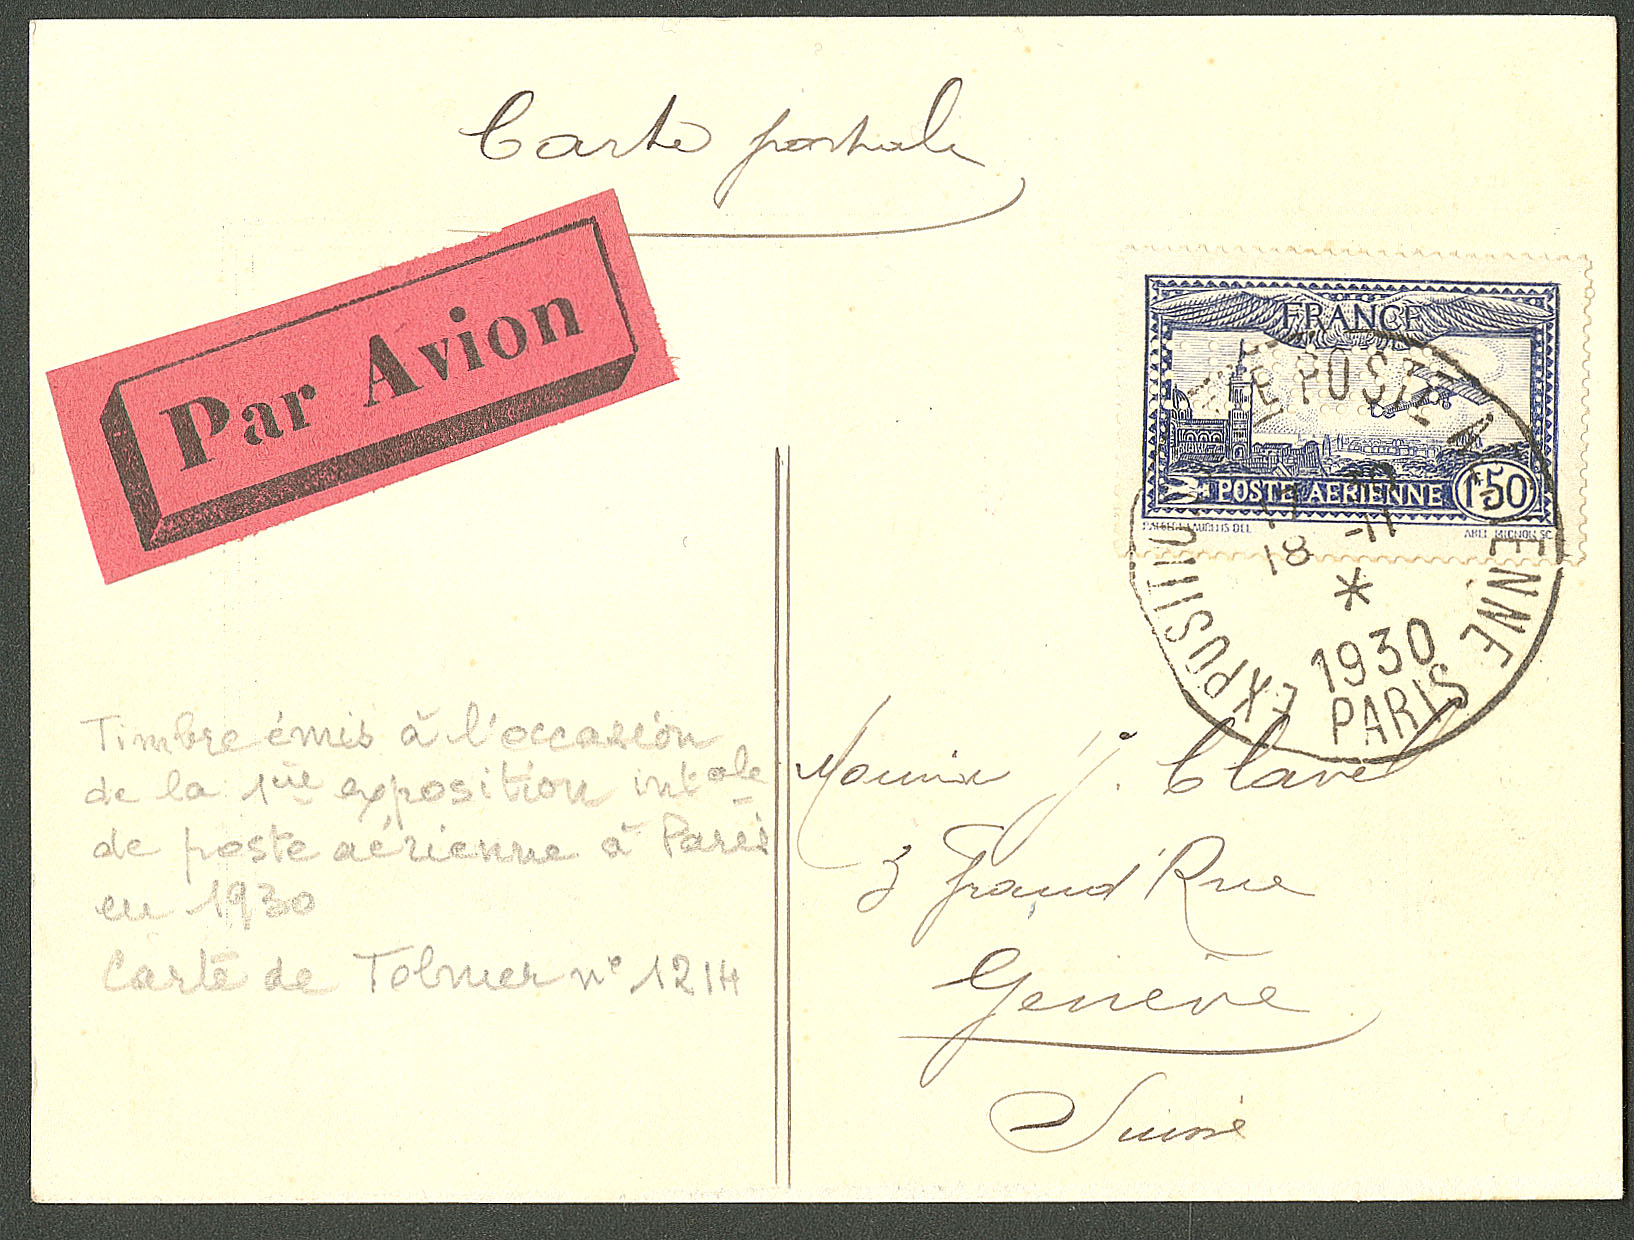 Carte postale
Par Avion
FRANCE
POSTE AÉRIENNE 1F50
ABEL MIGNON SC.
EXPOSITION DE POSTE AERIENNE
18 -11
*
1930
PARIS
Timbre émis à l'occasion
de la 1ère exposition intale
de poste aérienne à Paris
en 1930
Carte de Tolmer n° 1214
J. Clavel
3 Grand'Rue
Genève
Suisse